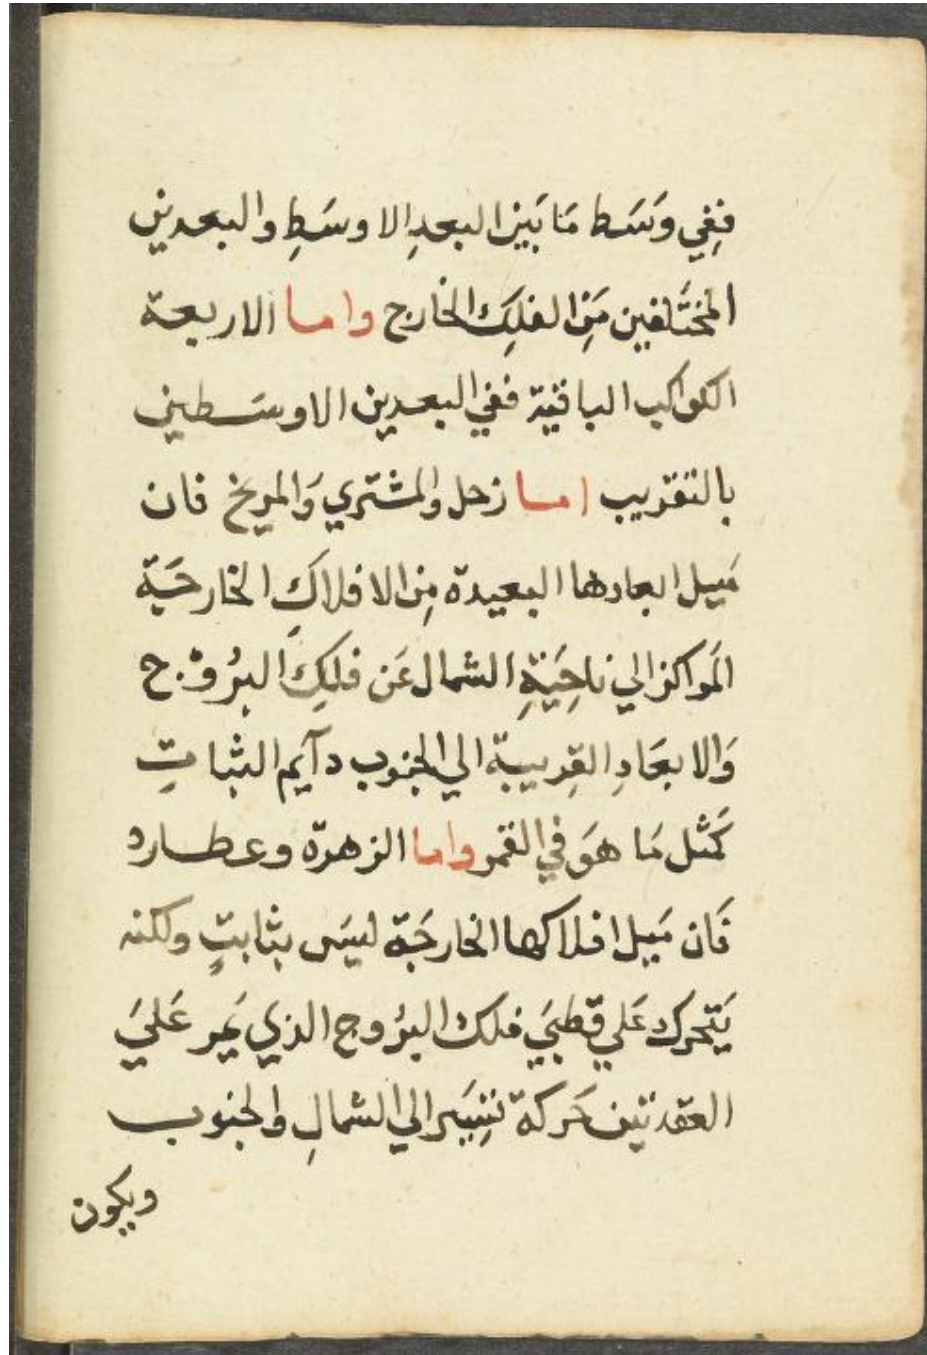 ففِي وَسَط مَا بَين البعدِ الاوسَطِ والبعدين
المختَلفين مَنِ الفلكِ الخارج واما الاربعة
الكواكب الباقية ففي البعدين الاوسَطين
بالتقريب اما زحل والمشتري وَالمريخ فان
مَيل ابعادها البعيدة مِن الافلاكِ الخارجَية
المَراكز الي ناحِيَةِ الشمال عَن فلكِ البُروج
وَالابعَادِ القِريبة الي الجنوب دآيم الثباتِ
كَمثل مَا هوَ في القمر واما الزهرة وعطارد
فَان مَيل افلاكها الخارجَة ليسَ بثابتٍ ولكنه
يَتحرك عَلي قطبيَ فلك البُروج الذي يَمر عَليَ
العقدتين حَركة تسِيَر الي الشمالِ والجنوب
ويكون